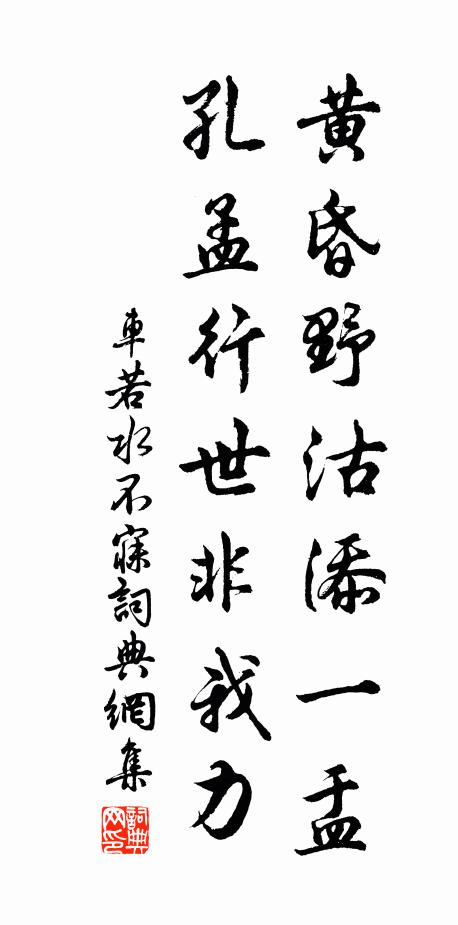 黄昏野沽添一盂
孔孟行世非我力
車若水不寐詞典網集
詞典网印